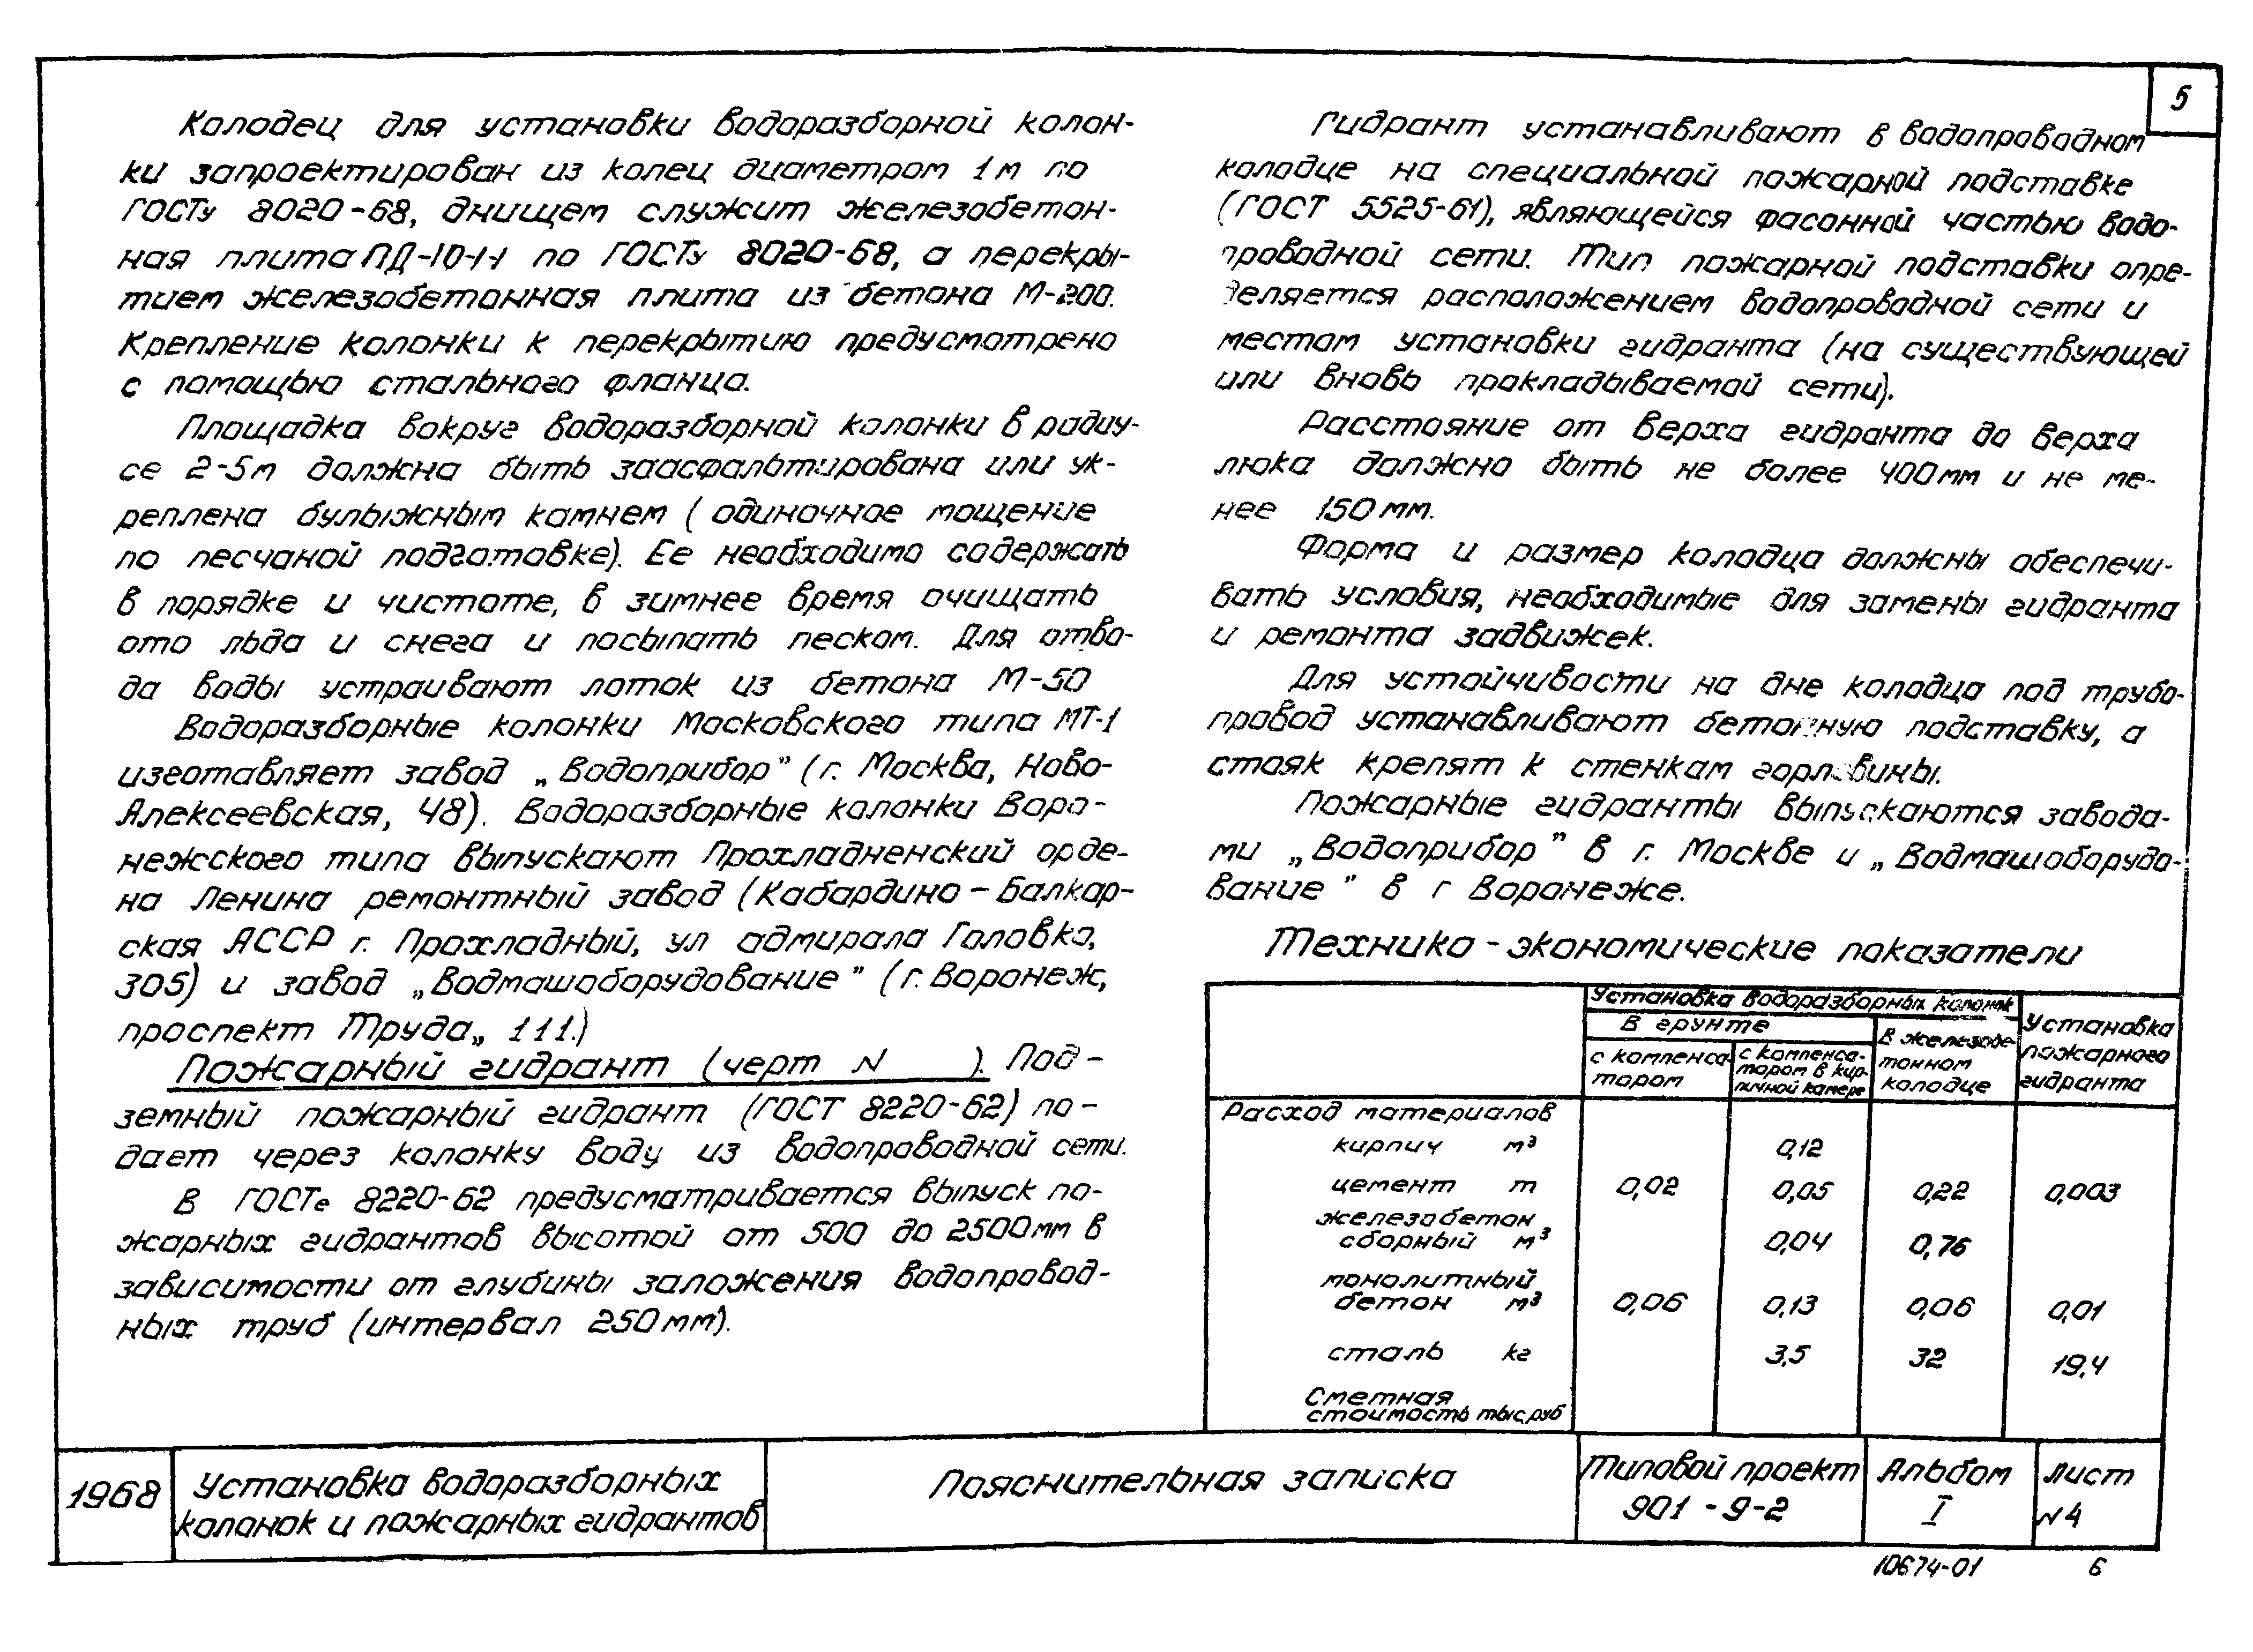 5
Колодец для установки водоразборной колон-
ки запроектирован из колец диаметром 1м по
ГОСТу 8020-68, днищем служит железобетон-
ная плита ПД-10-1-1 по ГОСТу 8020-68, а перекры-
тием железобетонная плита из бетона М-200.
Крепление колонки к перекрытию предусмотрено
с помощью стального фланца.
Площадка вокруг водоразборной колонки в радиу-
се 2-5м должна быть заасфальтирована или ук-
реплена булыжным камнем (одиночное мощение
по песчаной подготовке). Ее необходимо содержать
в порядке и чистоте, в зимнее время очищать
ото льда и снега и посыпать песком. Для отво-
да воды устраивают лоток из бетона М-50
Водоразборные колонки Московского типа МТ-1
изготавляет завод „Водоприбор" (г. Москва, Ново-
Алексеевская, 48). Водоразборные колонки Воро-
нежского типа выпускают Прохладненский орде-
на Ленина ремонтный завод (Кабардино-Балкар-
ская АССР г. Прохладный, ул адмирала Головко,
305) и завод „Водмашоборудование" (г. Воронеж,
проспект Труда„ 111.)
Пожарный гидрант (черт N ). Под-
земный пожарный гидрант (ГОСТ 8220-62) по-
дает через колонку воду из водопроводной сети.
В ГОСТе 8220-62 предусматривается выпуск по-
жарных гидрантов высотой от 500 до 2500мм в
зависимости от глубины заложения водопровод-
ных труб (интервал 250мм).
Гидрант устанавливают в водопроводном
колодце на специальной пожарной подставке
(ГОСТ 5525-61), являющейся фасонной частью водо-
проводной сети. Тип пожарной подставки опре-
деляется расположением водопроводной сети и
местом установки гидранта (на существующей
или вновь прокладываемой сети).
Расстояние от верха гидранта до верха
люка должно быть не более 400мм и не ме-
нее 150мм.
Форма и размер колодца должны обеспечи-
вать условия, необходимые для замены гидранта
и ремонта задвижек.
Для устойчивости на дне колодца под трубо-
провод устанавливают бетонную подставку, а
стояк крепят к стенкам горловины.
Пожарные гидранты выпускаются завода-
ми „Водоприбор" в г. Москве и „Водмашоборудо-
вание" в г Воронеже.
Технико-экономические показатели
Установка водоразборных колонок
В грунте
с компенса-
тором
с компенса-
тором в кир-
пичной камере
В железобе-
тонном
колодце
Установка
пожарного
гидранта
Расход материалов
кирпич м³ 0,12
цемент т 0,02 0,05 0,22 0,003
железобетон
сборный м³ 0,04 0,76
монолитный
бетон м³ 0,06 0,13 0,06 0,01
сталь кг 3,5 32 19,4
Сметная
стоимость тыс.руб
1968
Установка водоразборных
колонок и пожарных гидрантов
Пояснительная записка
Типовой проект
901-9-2
Альбом
I
Лист
N4
10674-01 6